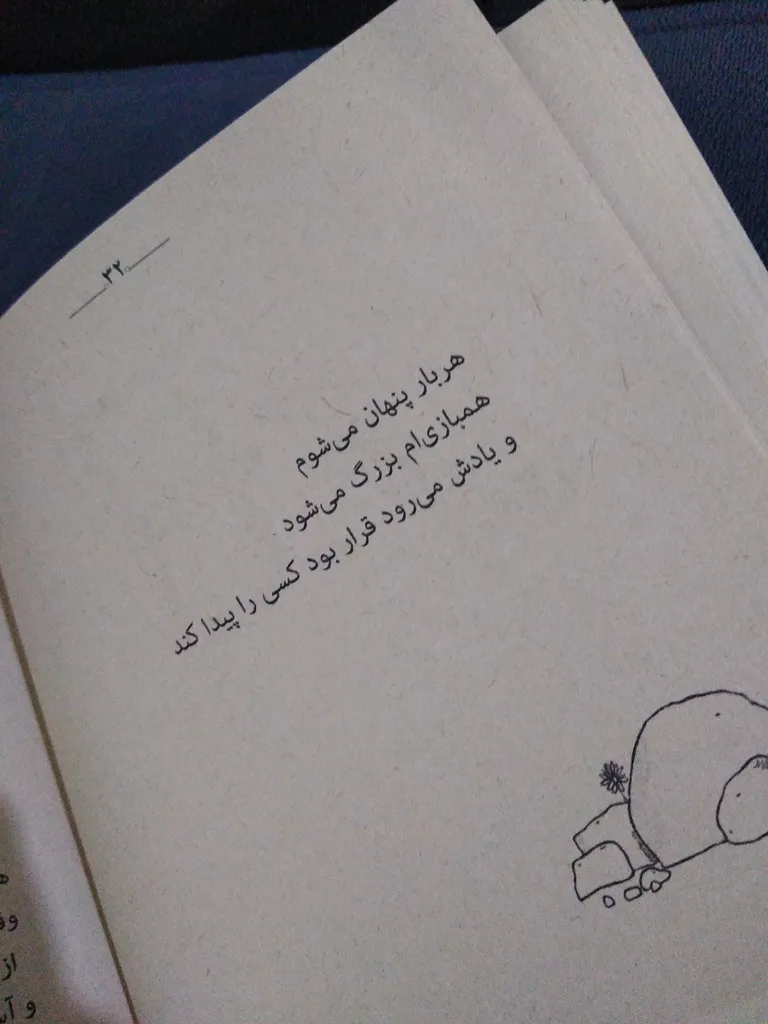 ۳۲
هربار پنهان می‌شوم
همبازی‌ام بزرگ می‌شود
و یادش می‌رود قرار بود کسی را پیدا کند
از